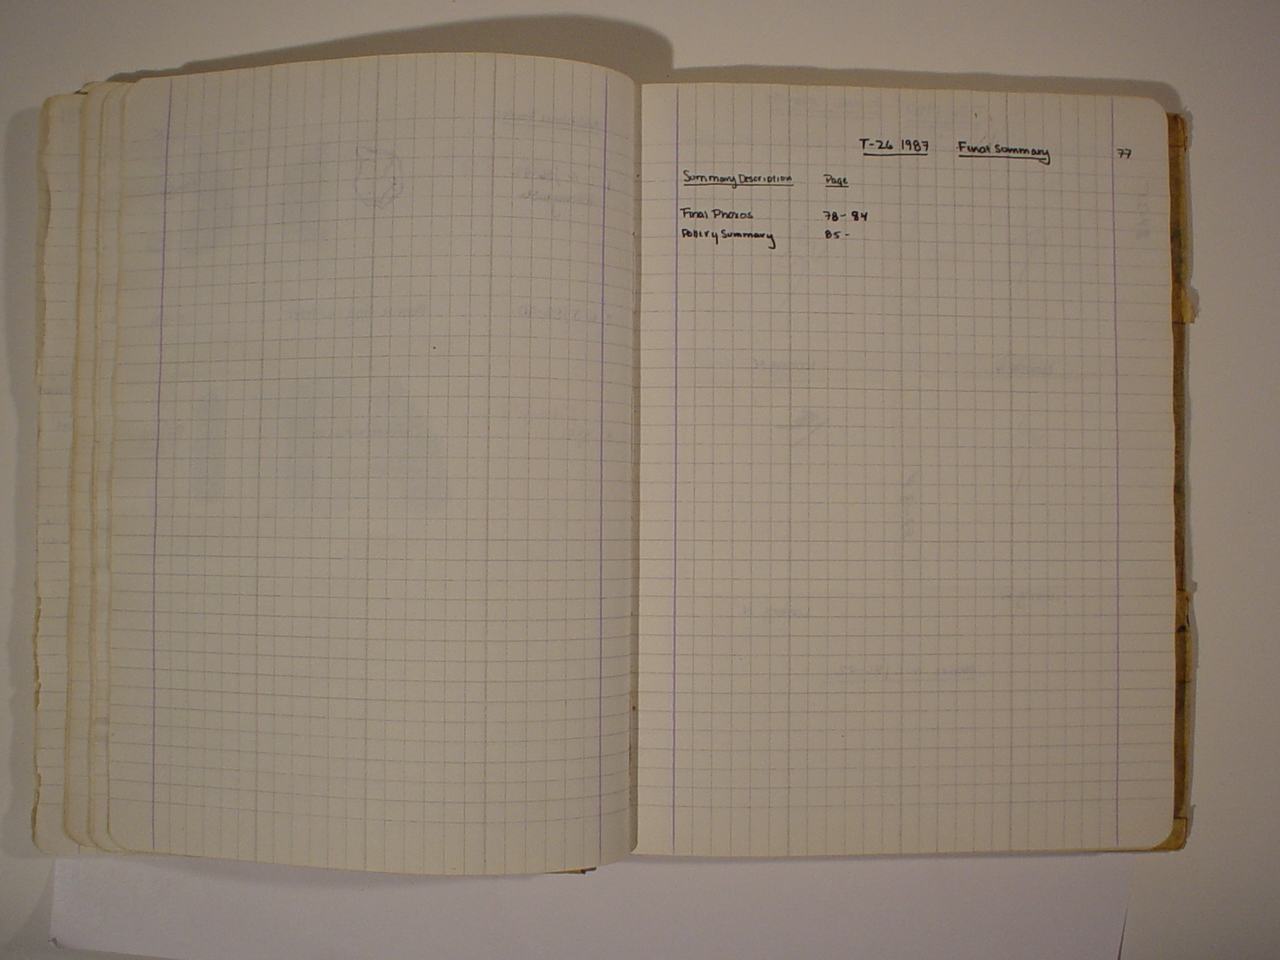 T-26 1987 Final Summary 77
Summary Description Page
Final Photos 78-84
Pottery Summary 85-